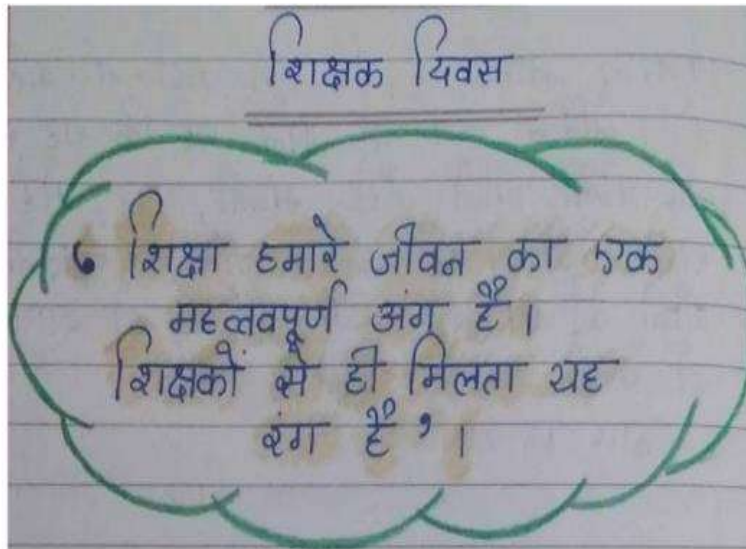 शिक्षक दिवस
‘ शिक्षा हमारे जीवन का एक
महत्वपूर्ण अंग है।
शिक्षकों से ही मिलता यह
रंग है ’।